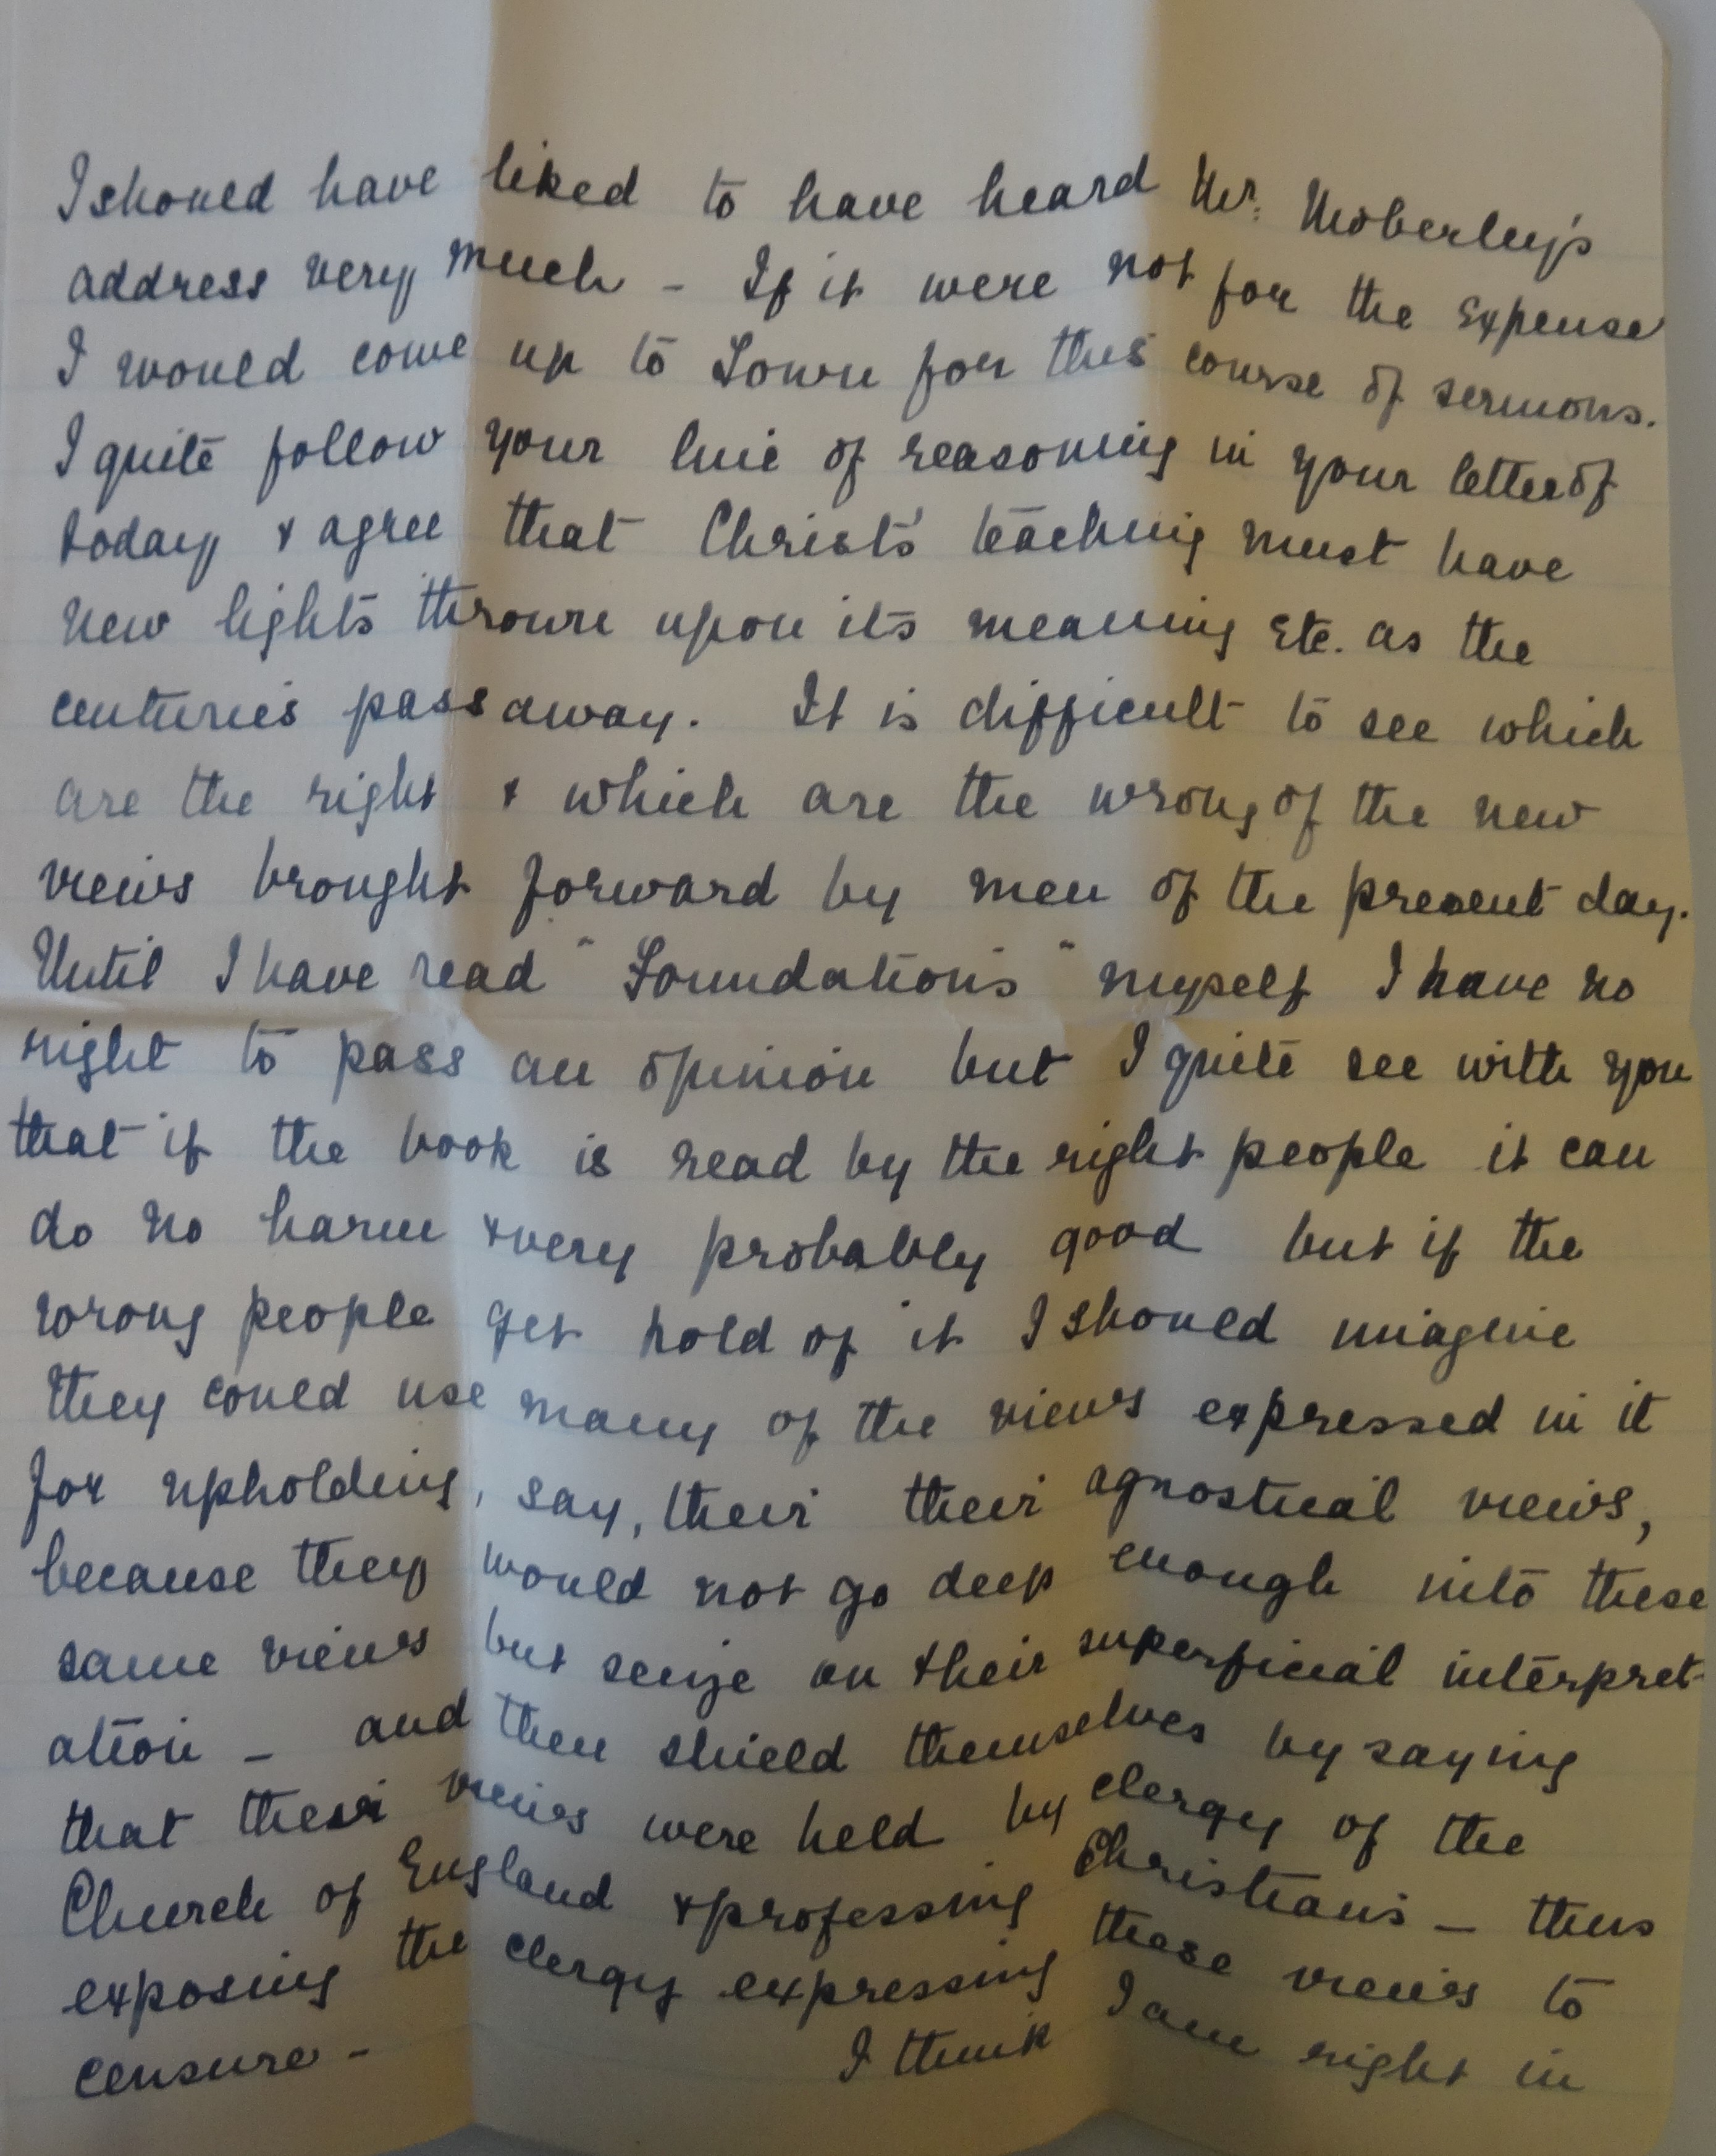 I should have liked to have heard Mr. Moberley's
address very much - If it were not for the expense
I would come up to Town for this course of sermons.
I quite follow your line of reasoning in your letter of
today & agree that Christ's teaching must have
new lights thrown upon its meaning etc. as the
centuries pass away. It is difficult to see which
are the right & which are the wrong of the new
views brought forward by men of the present day.
Until I have read "Foundations" myself I have no
right to pass an opinion but I quite see with you
that if the book is read by the right people it can
do no harm & very probably good but if the
wrong people get hold of it I should imagine
they could use many of the views expressed in it
for upholding, say, their their agnostical views,
because they would not go deep enough into these
same views but seize on their superficial interpret-
ation - and then shield themselves by saying
that their views were held by clergy of the
Church of England & professing Christians - thus
exposing the clergy expressing these views to
censure - I think I am right in